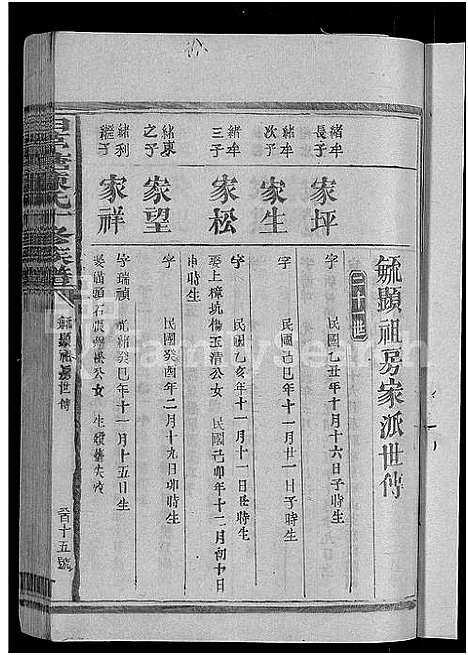 毓顯祖房家派世傳
緒牟長子
家坪
字
民國乙丑年十月十六日子時生
緒牟次子
家生
字
民國己巳年十一月廿一日子時生
緒牟三子
家松
字
民國乙亥年十一月十一日巳時生
娶上樟坑楊玉清公女
民國己卯年十二月初十日申時生
緒東之子
家望
字
民國癸酉年二月十九日卯時生
緒利繼子
家祥
字瑞禎
光緒癸巳年十一月十五日生
公女
毓顯祖房世傳
百十五號
FamilySearch